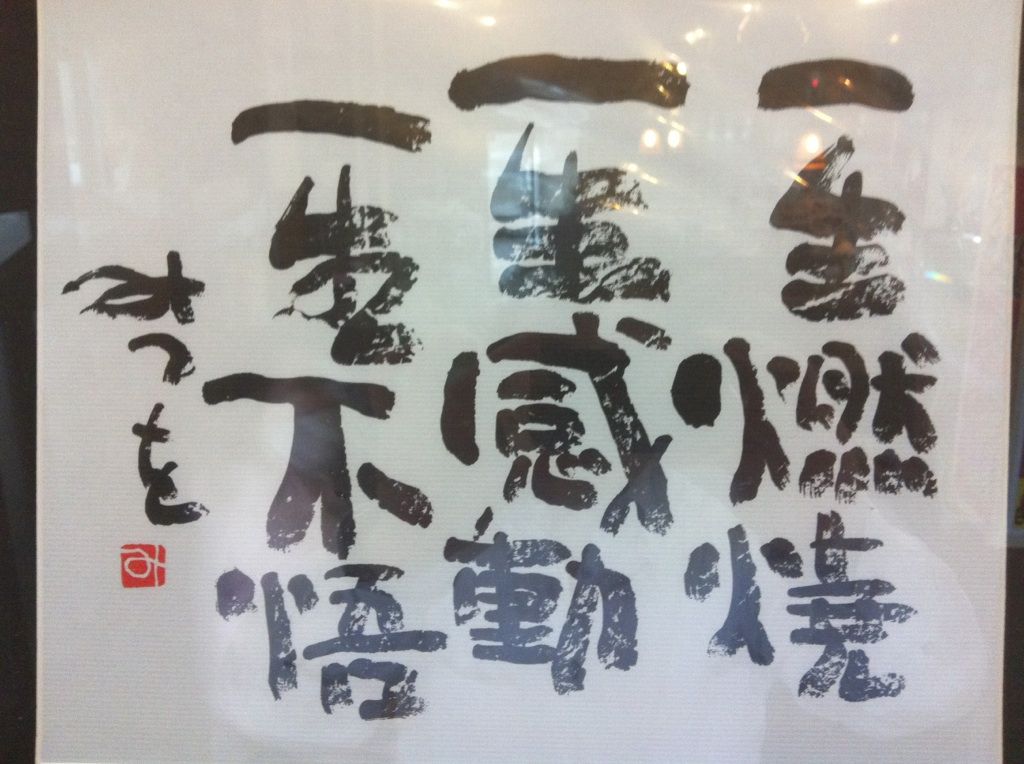 一生燃焼
一生感動
一生不悟
みつを
み